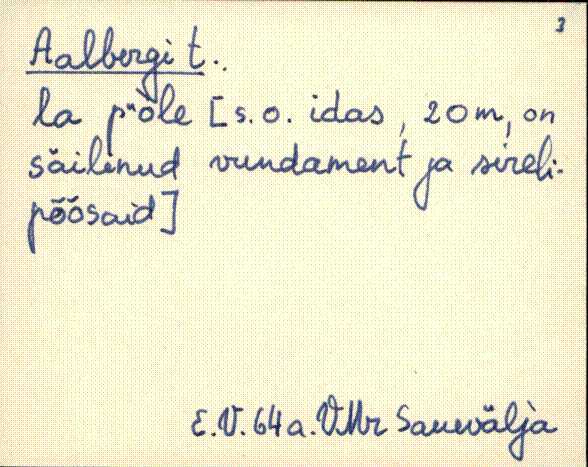 3
Aalbergi t..
la põle [s.o. idas, 20m, on
säilinud vundament ja sireli-
põõsaid]
E.V. 64 a. VMr Sauevälja